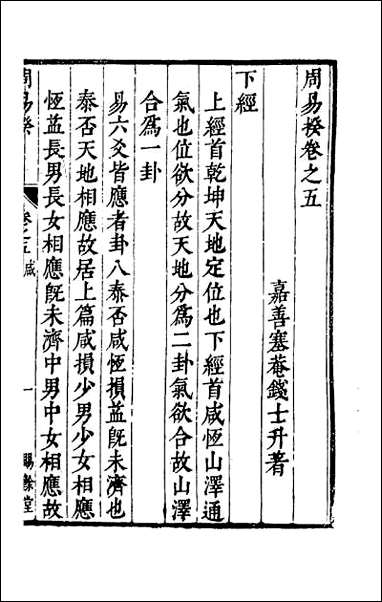 周易揆卷之五
嘉善塞菴錢士升著
下經
上經首乾坤天地定位也下經首咸恆山澤通
氣也位欲分故天地分爲二卦氣欲合故山澤
合爲一卦
易六爻皆應者卦八泰否咸恆損益旣未濟也
泰否天地相應故居上篇咸損少男少女相應
恆益長男長女相應旣未濟中男中女相應故
周易揆
卷之五咸
一
賜餘堂